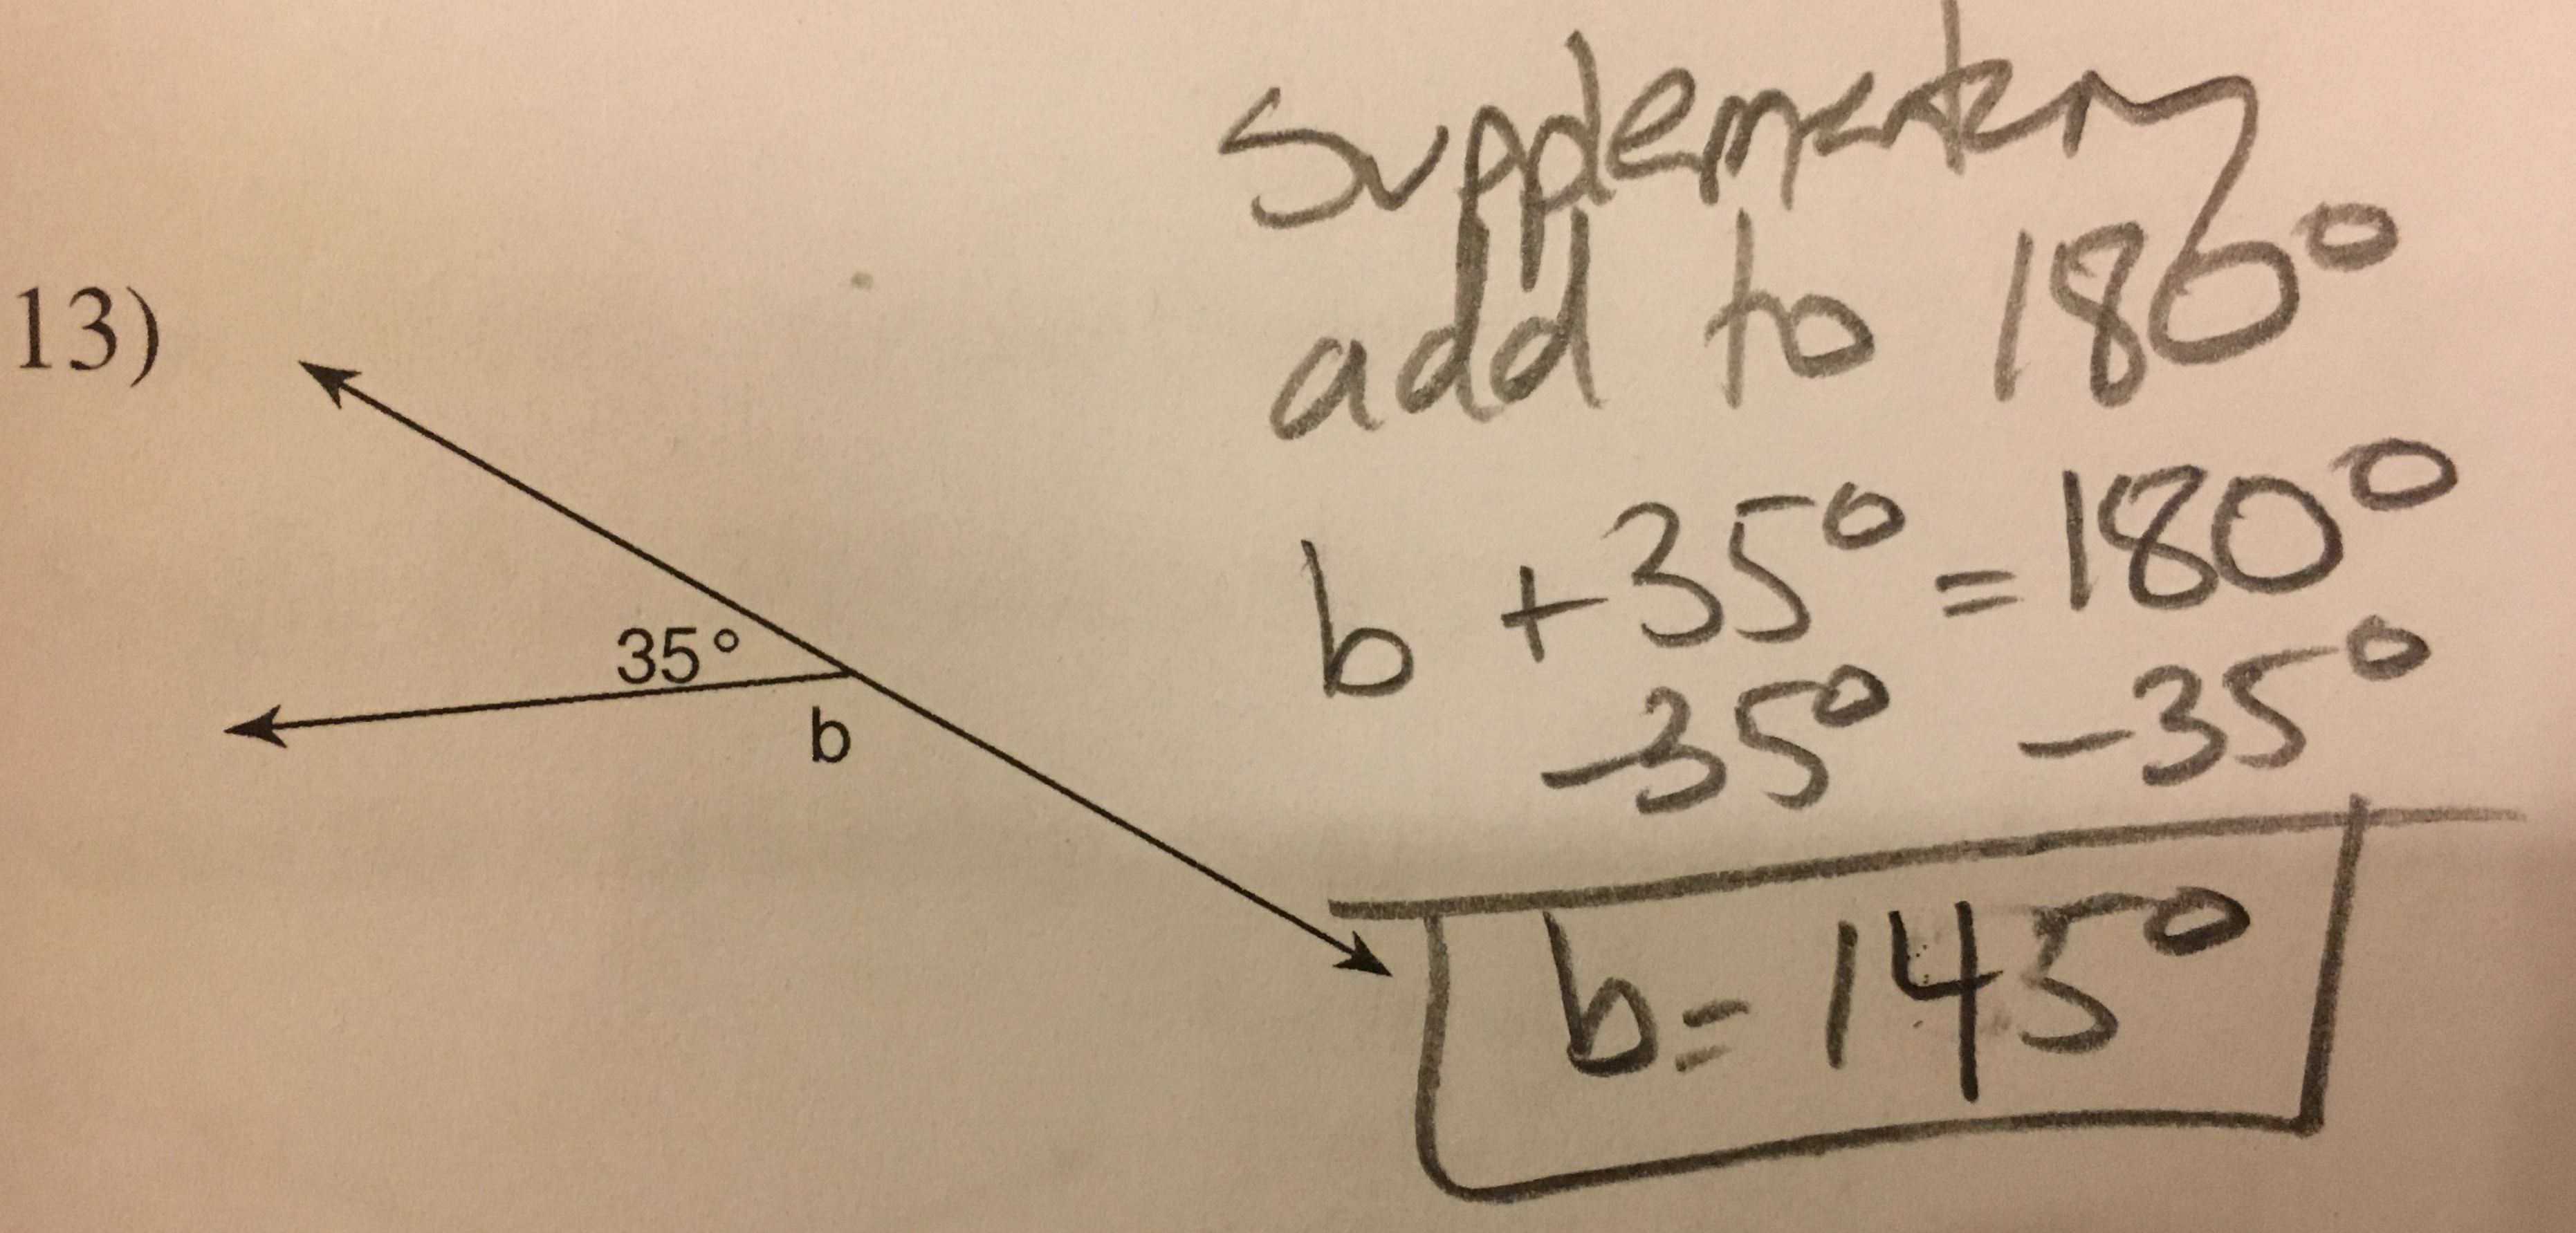 13)
35°
b
Supplementary
add to 180°
b + 35° = 180°
-35° -35°
b = 145°